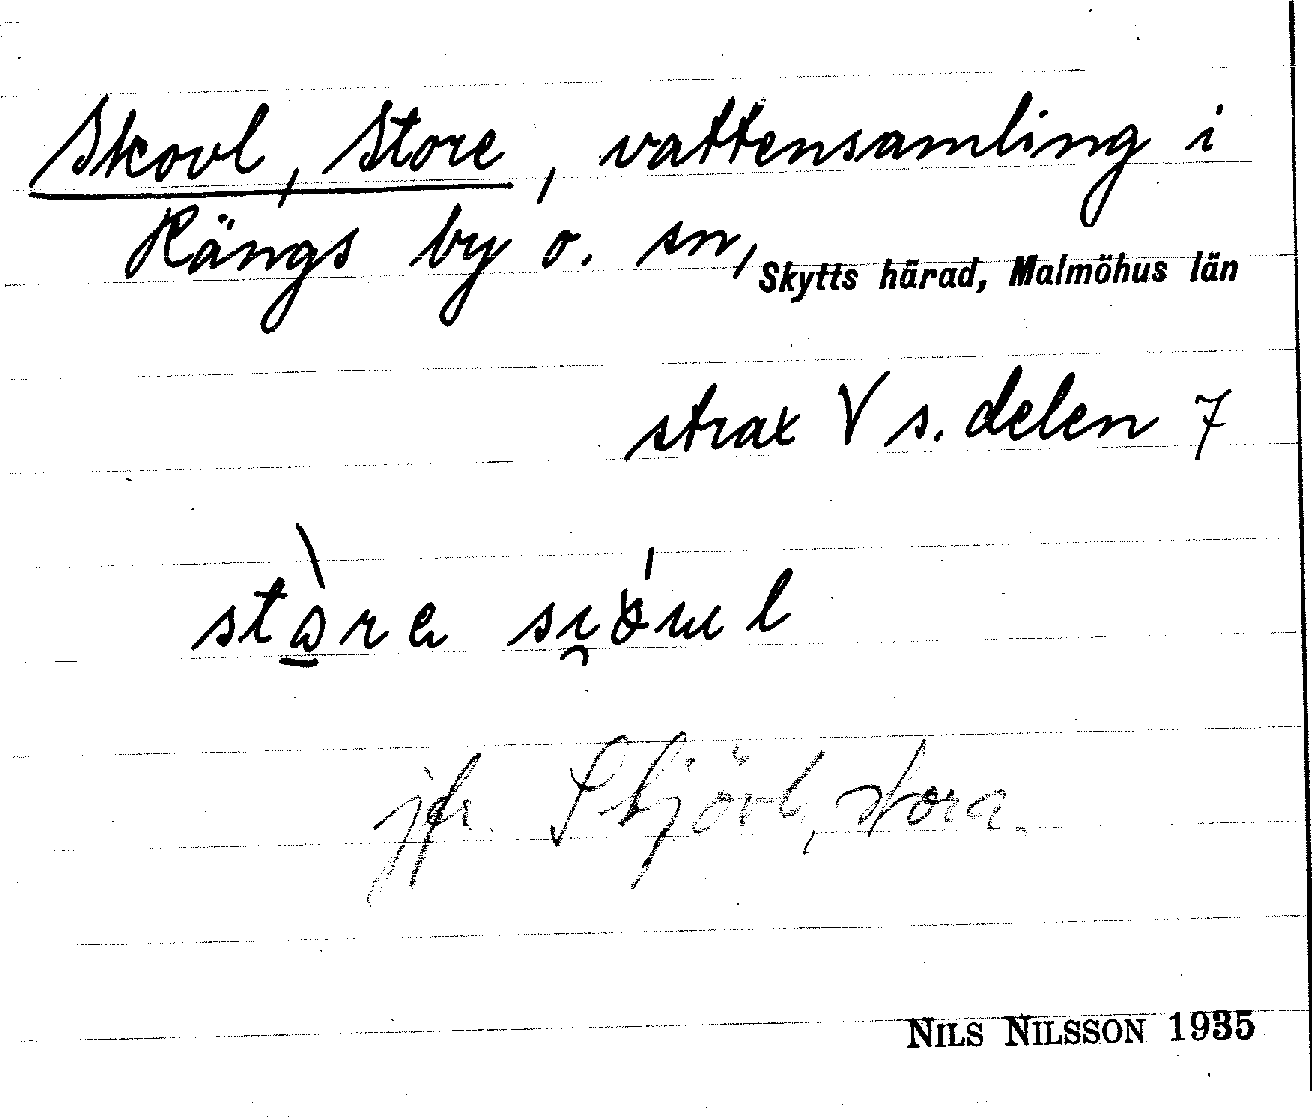 Skovl, Store, vattensamling i
Rängs by o. sn, Skytts härad, Malmöhus län
strax V s. delen 7
jfr. Skjövl, stora.
NILS NILSSON 1935